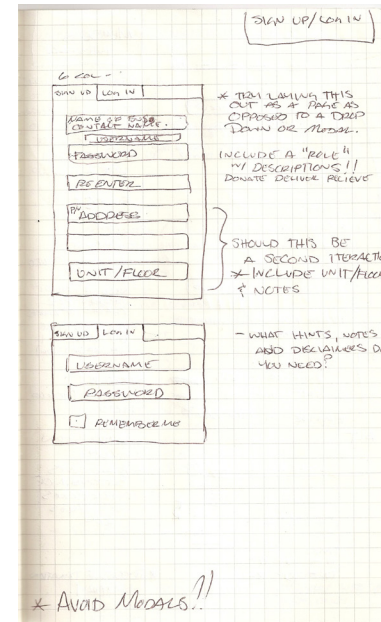 SIGN UP/LOG IN
6 COL -
SIGN UP LOG IN
NAME OF
CONTACT NAME.
USERNAME
PASSWORD
REENTER
ADDRESS
UNIT/FLOOR
* TRY LAYING THIS
OUT AS A PAGE AS
OPPOSED TO A DROP
DOWN OR MODAL.
INCLUDE A "ROLE"
W/ DESCRIPTIONS!!
DONATE DELIVER RECIEVE
SHOULD THIS BE
A SECOND ITERACTI
* INCLUDE UNIT/FLOO
& NOTES
SIGN UP LOG IN
USERNAME
PASSWORD
REMEMBER ME
- WHAT HINTS, NOTES
AND DISCLAIMERS D
YOU NEED?
* AVOID MODALS!!